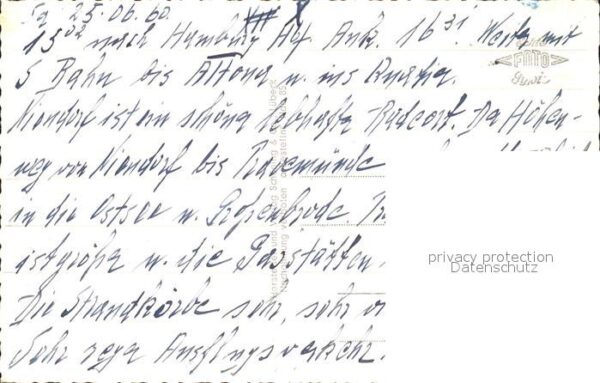 Sa 25.06.60.
15 02 nach Hamburg Hbf. Ank. 16 31. Weiter mit
S Bahn bis Altona u. ins Quartier.
Niendorf ist ein schöner lebhafter Badeort. Der Höhen-
weg von Niendorf bis Travemünde
in die Ostsee u. Großenbrode.
ist größer u. die Gaststätten.
Die Strandkörbe sehr, sehr
Sehr reger Ausflugsverkehr.
FOTO
privacy protection
Datenschutz